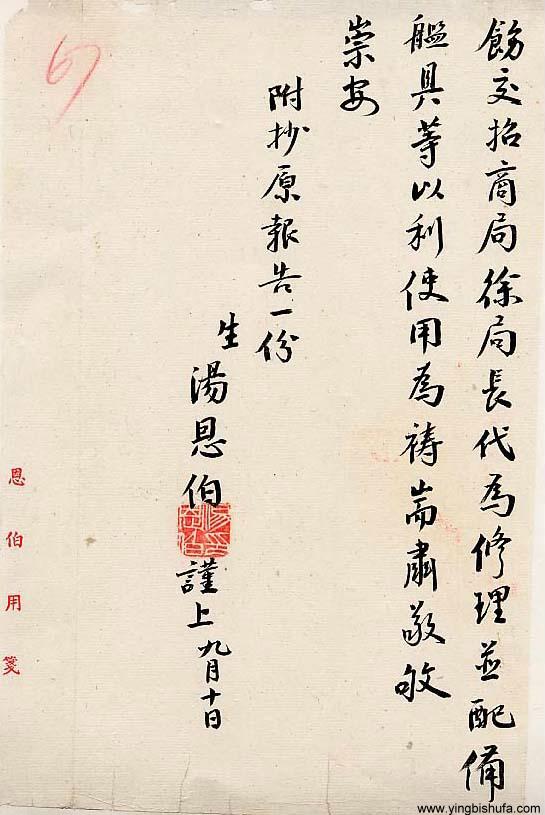 飭交招商局徐局長代為修理並配備
艦具等以利使用為禱耑肅敬敂
崇安
附抄原報告一份
生
湯恩伯
謹上九月十日
恩伯用箋
www.yingbishufa.com